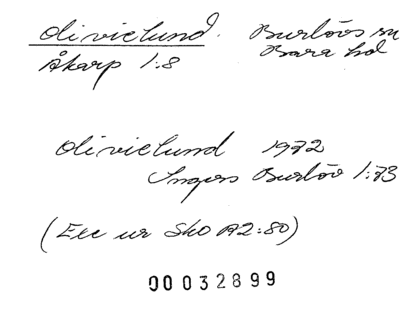 Olivielund. Burlövs sn
Åkarp 1:8 Bara hd
Olivielund 1972
Ingers Burlöv 1:73
(Exc ur SkO A2:80)
00032899